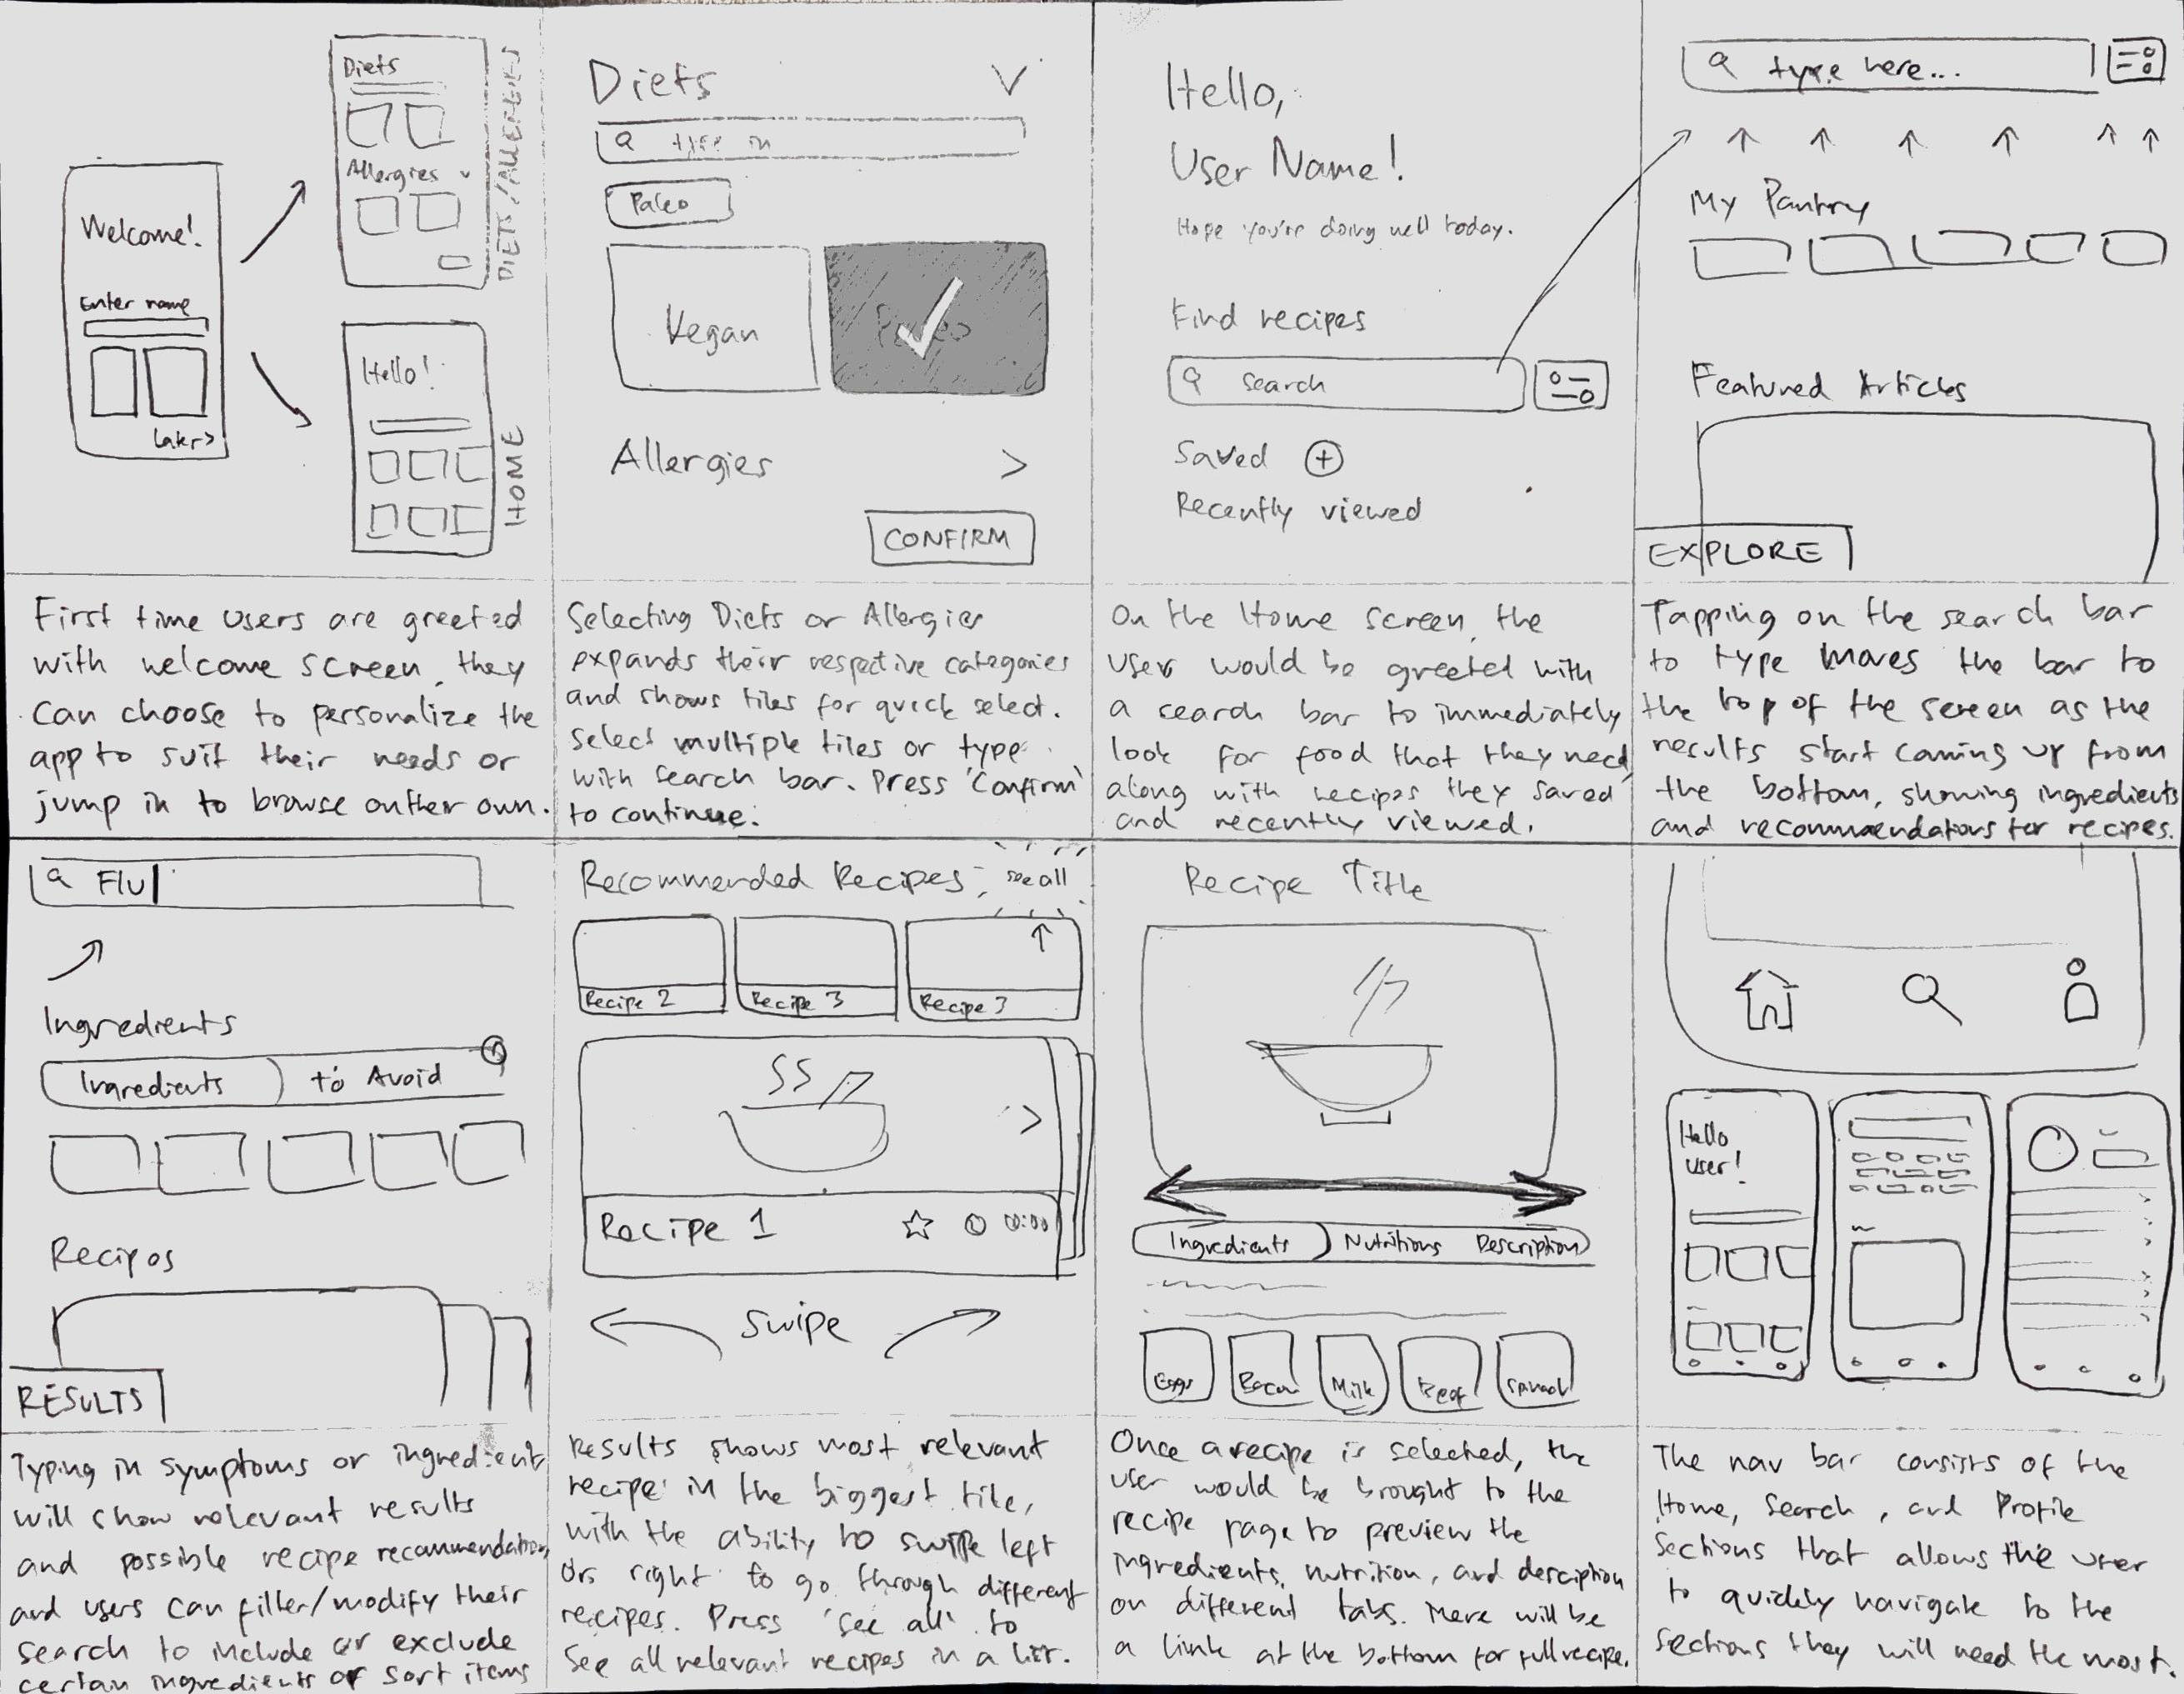 Welcome!
Enter name
Later>
Diets
Allergies
DIETS/ALLERGIES
Hello!
HOME
First time users are greeted
with welcome screen, they
can choose to personalize the
app to suit their needs or
jump in to browse on their own.
Diets
type in
Paleo
Vegan
Allergies >
CONFIRM
Selecting Diets or Allergies
expands their respective categories
and shows tiles for quick select.
Select multiple tiles or type
with search bar. Press 'Confirm'
to continue.
Hello,
User Name!
Hope you're doing well today.
Find recipes
search
Saved +
Recently viewed
On the Home screen, the
user would be greeted with
a search bar to immediately
look for food that they need
along with recipes they saved
and recently viewed.
type here...
My Pantry
Featured Articles
EXPLORE
Tapping on the search bar
to type moves the bar to
the top of the screen as the
results start coming up from
the bottom, showing ingredients
and recommendations for recipes.
Flu
Ingredients
Ingredients to Avoid
Recipes
RESULTS
Typing in symptoms or ingredients
will show relevant results
and possible recipe recommendations
and users can filter/modify their
search to include or exclude
certain ingredients or sort items
Recommended Recipes see all
Recipe 2 Recipe 3 Recipe 3
>
Recipe 1 00:00
Swipe
Results shows most relevant
recipe in the biggest tile,
with the ability to swipe left
or right to go through different
recipes. Press 'see all' to
see all relevant recipes in a list.
Recipe Title
Ingredients Nutritions Description
Eggs Bacon Milk Beef
Once a recipe is selected, the
user would be brought to the
recipe page to preview the
ingredients, nutrition, and desciption
on different tabs. There will be
a link at the bottom for full recipe.
Hello
user!
The nav bar consists of the
Home, Search, and Profile
sections that allows the user
to quickly navigate to the
sections they will need the most.